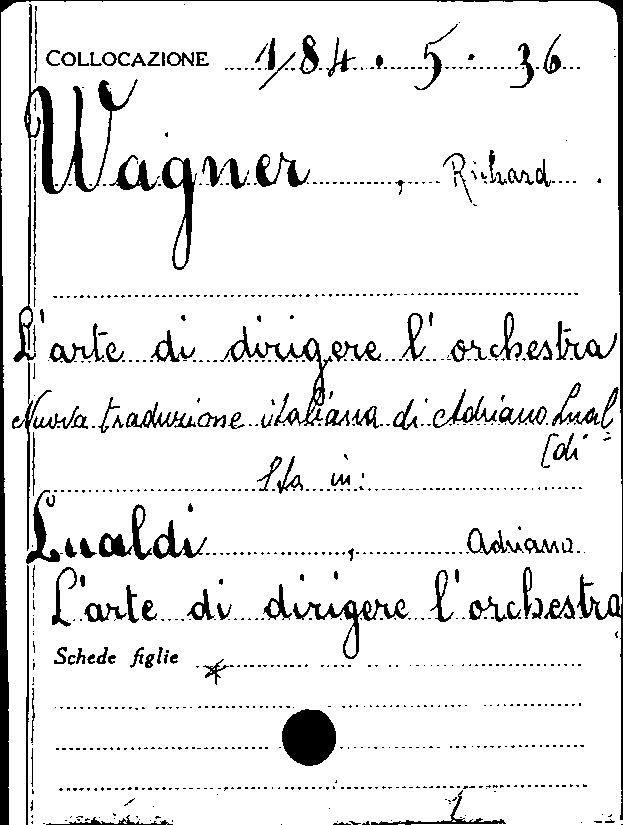 COLLOCAZIONE 184 . 5 . 36
Wagner , Richard .
L'arte di dirigere l'orchestra
Nuova traduzione italiana di Adriano Lual=
[di
Sta in:
Lualdi , Adriano
L'arte di dirigere l'orchestra
Schede figlie *